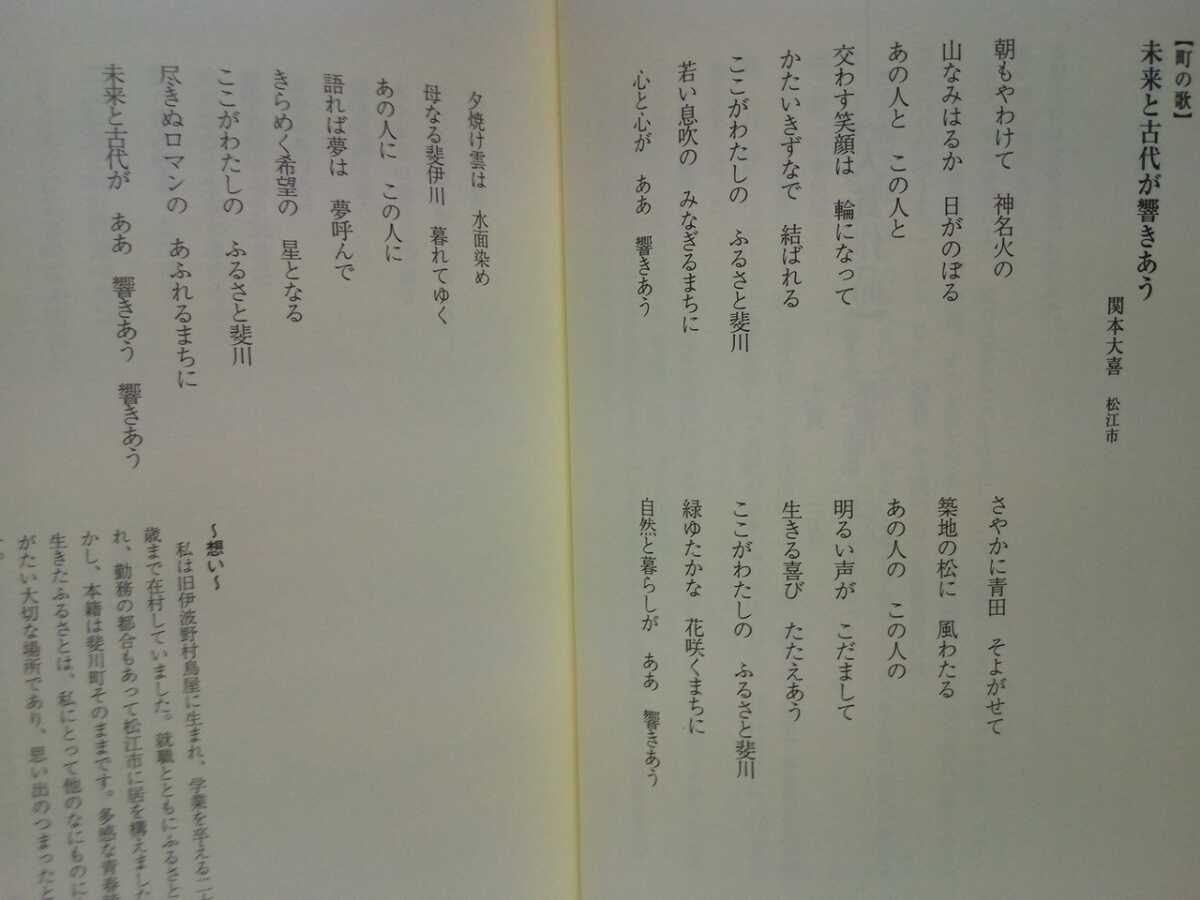 【町の歌】
未来と古代が響きあう
関本大喜 松江市
朝もやわけて 神名火の
山なみはるか 日がのぼる
あの人と この人と
交わす笑顔は 輪になって
かたいきずなで 結ばれる
ここがわたしの ふるさと斐川
若い息吹の みなぎるまちに
心と心が ああ 響きあう
さやかに青田 そよがせて
築地の松に 風わたる
あの人の この人の
明るい声が こだまして
生きる喜び たたえあう
ここがわたしの ふるさと斐川
緑ゆたかな 花咲くまちに
自然と暮らしが ああ 響きあう
夕焼け雲は 水面染め
母なる斐伊川 暮れてゆく
あの人に この人に
語れば夢は 夢呼んで
きらめく希望の 星となる
ここがわたしの ふるさと斐川
尽きぬロマンの あふれるまちに
未来と古代が ああ 響きあう 響きあう
～想い～
私は旧伊波野村鳥屋に生まれ、学業を卒える二
歳まで在村していました。就職とともにふるさと
れ、勤務の都合もあって松江市に居を構えました
かし、本籍は斐川町そのままです。多感な青春
生きたふるさとは、私にとって他のなにものに
がたい大切な場所であり、思い出のつまったと
す。